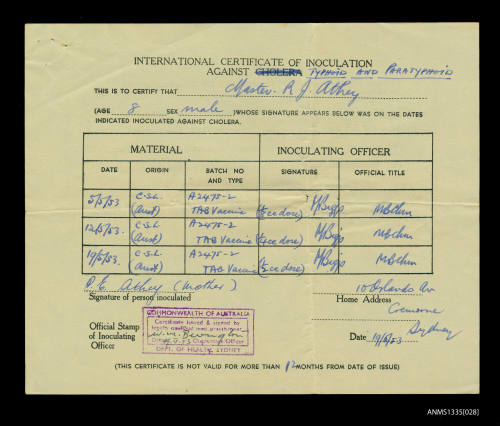 INTERNATIONAL CERTIFICATE OF INOCULATION
AGAINST CHOLERA TYPHOID AND PARATYPHOID
THIS IS TO CERTIFY THAT Master. R J. Athey
(AGE 8 SEX male) WHOSE SIGNATURE APPEARS BELOW WAS ON THE DATES
INDICATED INOCULATED AGAINST CHOLERA.
MATERIAL INOCULATING OFFICER
DATE ORIGIN BATCH NO AND TYPE SIGNATURE OFFICIAL TITLE
5/5/53 C.S.L. (Aust) A2475-2 TAB Vaccine (½cc dose) M Biggs MBChM
12/5/53. C.S.L. (Aust) A2475-2 TAB Vaccine (½cc dose) M Biggs MBChm
19/5/53 C.S.L. (Aust) A2475-2 TAB Vaccine (½cc dose) M Biggs MBChm
P.E. Athey (mother) 10 Orlando Av
Signature of person inoculated Home Address
Cremorne
Sydney
Official Stamp
of Inoculating
Officer
COMMONWEALTH OF AUSTRALIA
Certificate issued & signed by
legally qualified med. practitioner
Quarantine Officer
DEPT. OF HEALTH, SYDNEY
Date 19/5/53
(THIS CERTIFICATE IS NOT VALID FOR MORE THAN 12 MONTHS FROM DATE OF ISSUE)
ANMS1335[028]